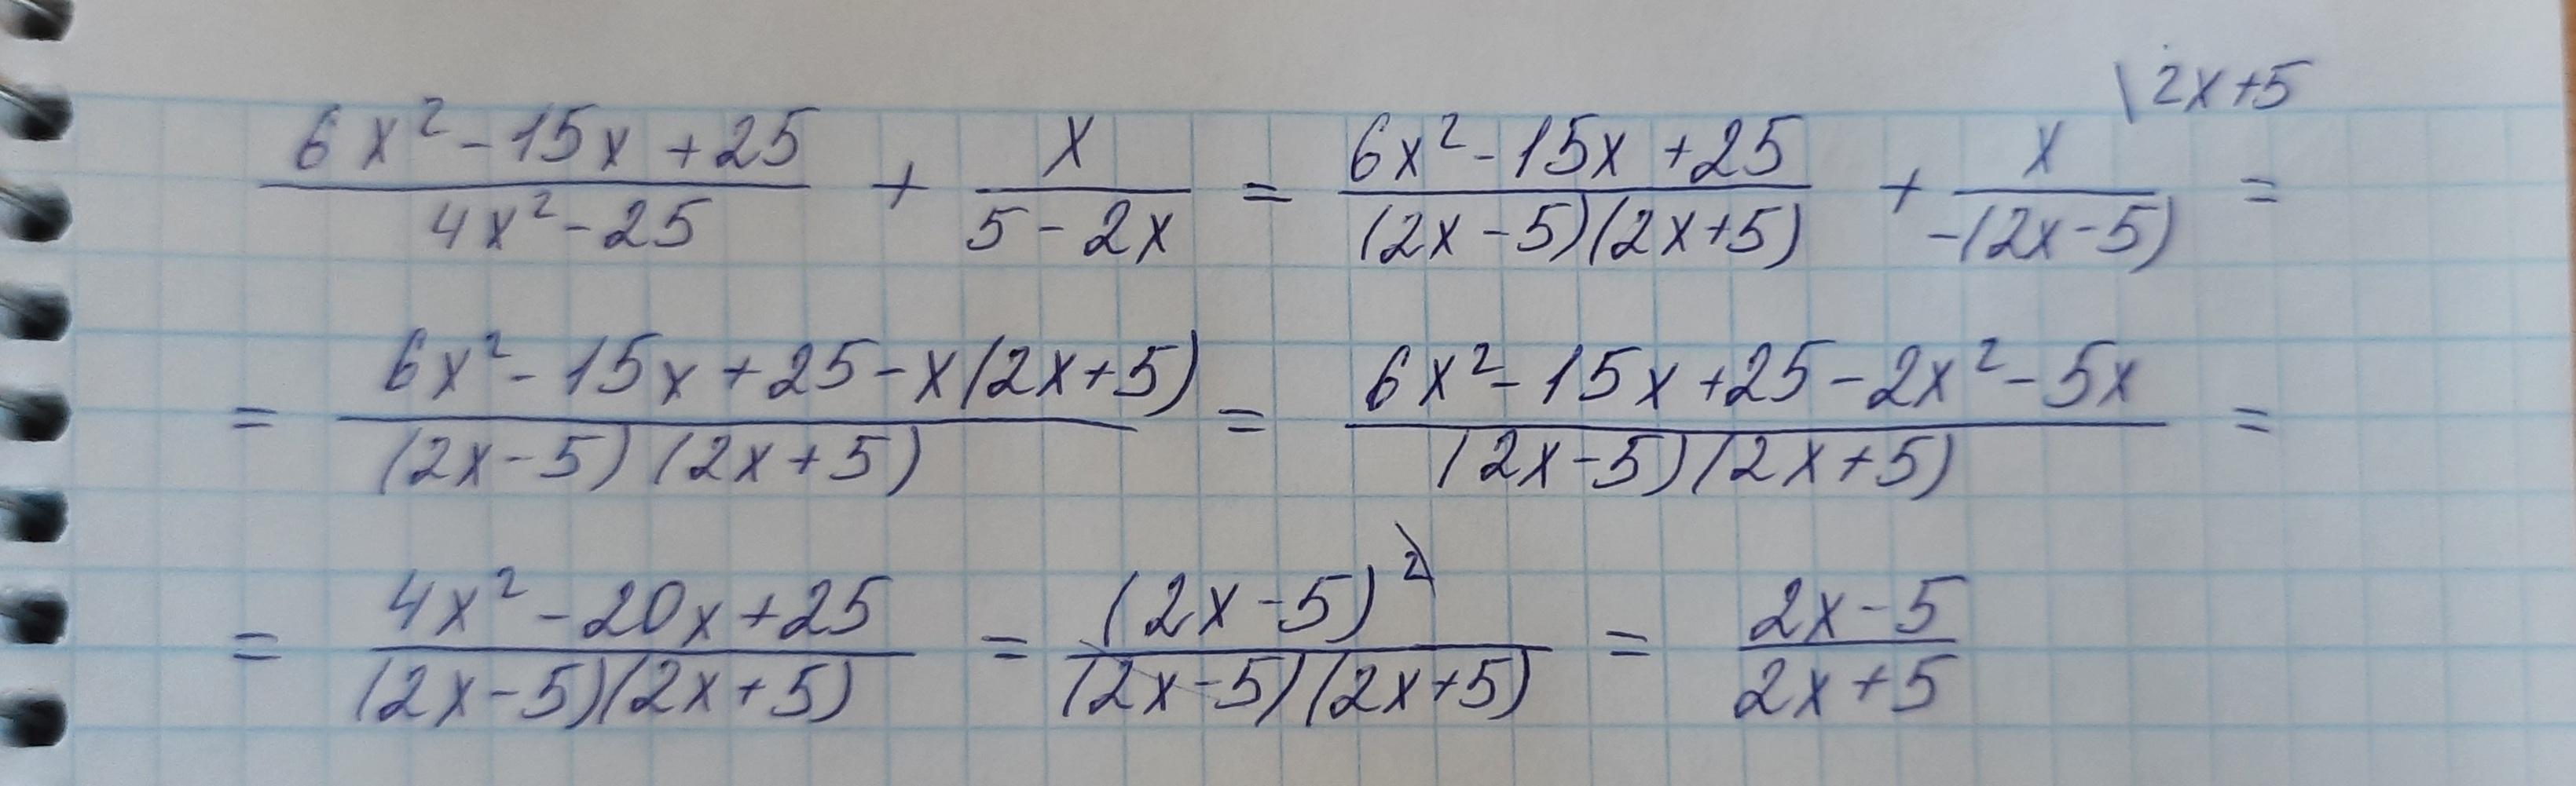 \frac{6x^2-15x+25}{4x^2-25} + \frac{x}{5-2x} = \frac{6x^2-15x+25}{(2x-5)(2x+5)} + \frac{x}{-(2x-5)}^{\backslash 2x+5} =
= \frac{6x^2-15x+25-x(2x+5)}{(2x-5)(2x+5)} = \frac{6x^2-15x+25-2x^2-5x}{(2x-5)(2x+5)} =
= \frac{4x^2-20x+25}{(2x-5)(2x+5)} = \frac{(2x-5)^2}{(2x-5)(2x+5)} = \frac{2x-5}{2x+5}